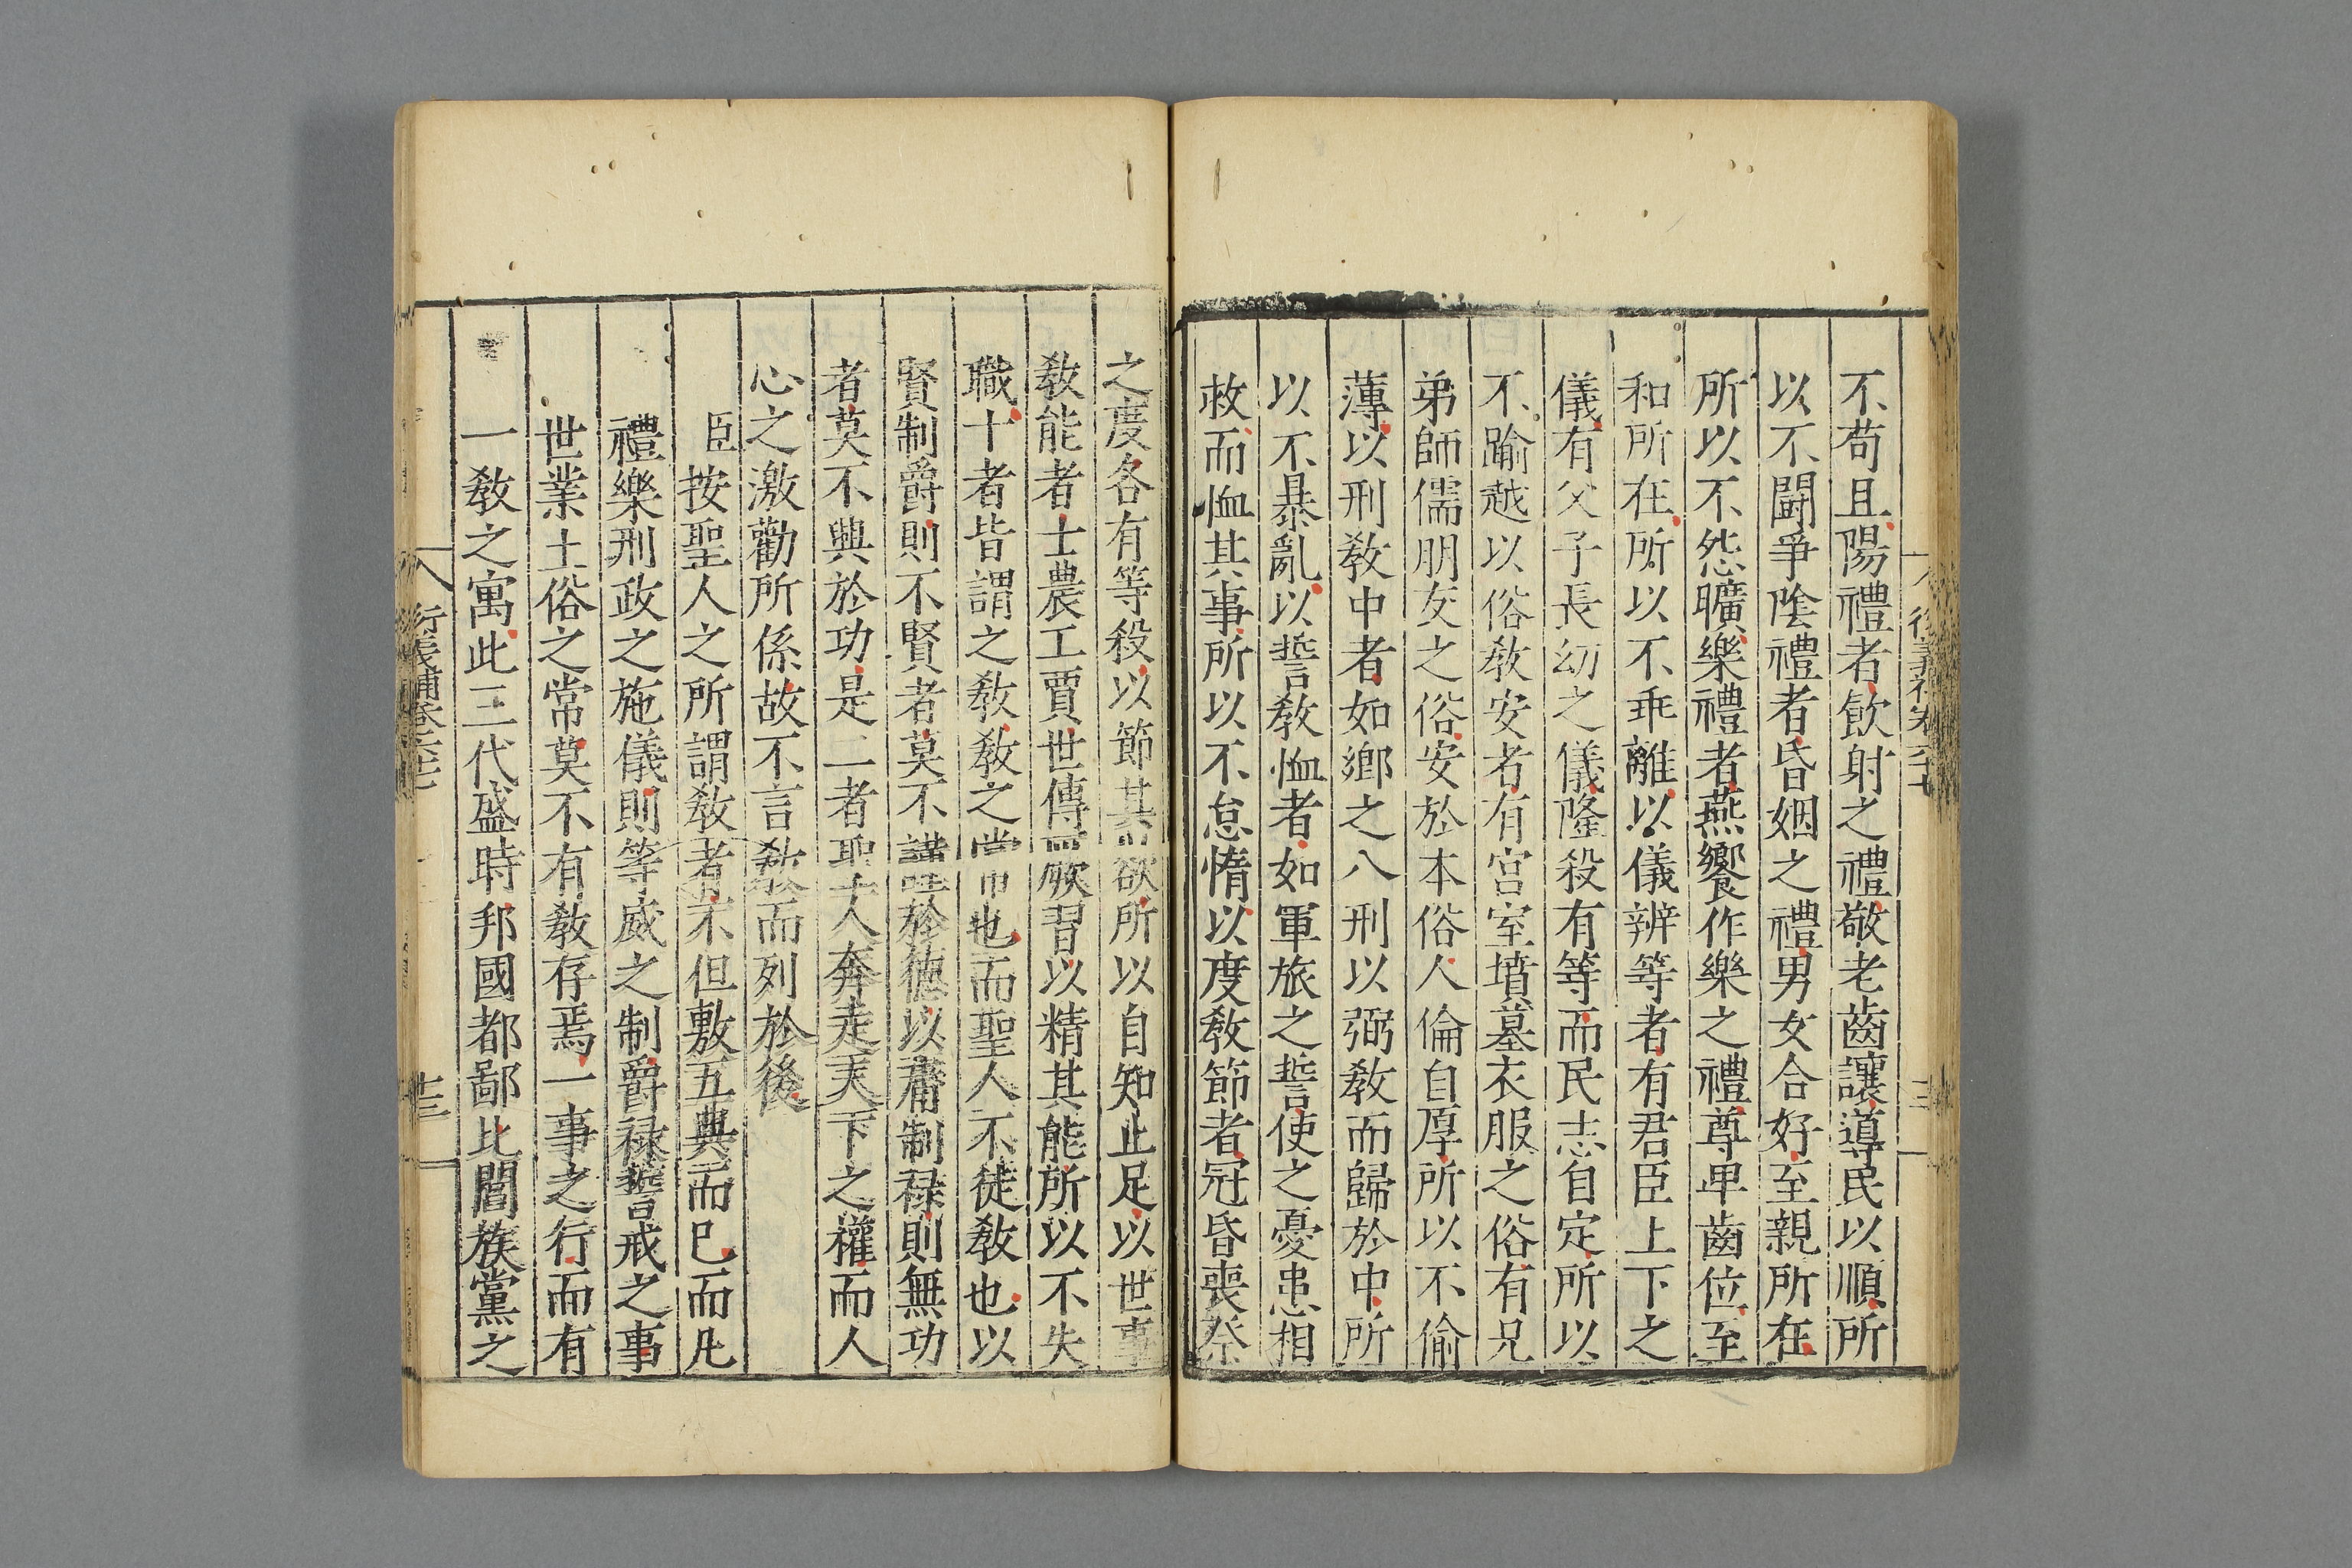 不苟且陽禮者飲射之禮敬老齒讓導民以順所
以不鬪爭陰禮者昏姻之禮男女合好至親所在
所以不怨曠樂禮者燕饗作樂之禮尊卑齒位至
和所在所以不乖離以儀辨等者有君臣上下之
儀有父子長幼之儀隆殺有等而民志自定所以
不踰越以俗敎安者有宫室墳墓衣服之俗有兄
弟師儒朋友之俗安於本俗人倫自厚所以不偷
薄以刑敎中者如鄉之八刑以弼敎而歸於中所
以不暴亂以誓敎恤者如軍旅之誓使之憂患相
救而恤其事所以不怠惰以度敎節者冠昏喪祭
之度各有等殺以節其欲所以自知止足以世事
敎能者士農工賈世傳厥習以精其能所以不失
職十者皆謂之敎敎之常也而聖人不徒敎也以
賢制爵則不賢者莫不講於德以庸制祿則無功
者莫不興於功是二者聖人奔走天下之權而人
心之激勸所係故不言敎而列於後
臣按聖人之所謂敎者不但敷五典而已而凡
禮樂刑政之施儀則等威之制爵祿誓戒之事
世業土俗之常莫不有敎存焉一事之行而有
一敎之寓此三代盛時邦國都鄙比閭族黨之
衍義補卷六十七
十三